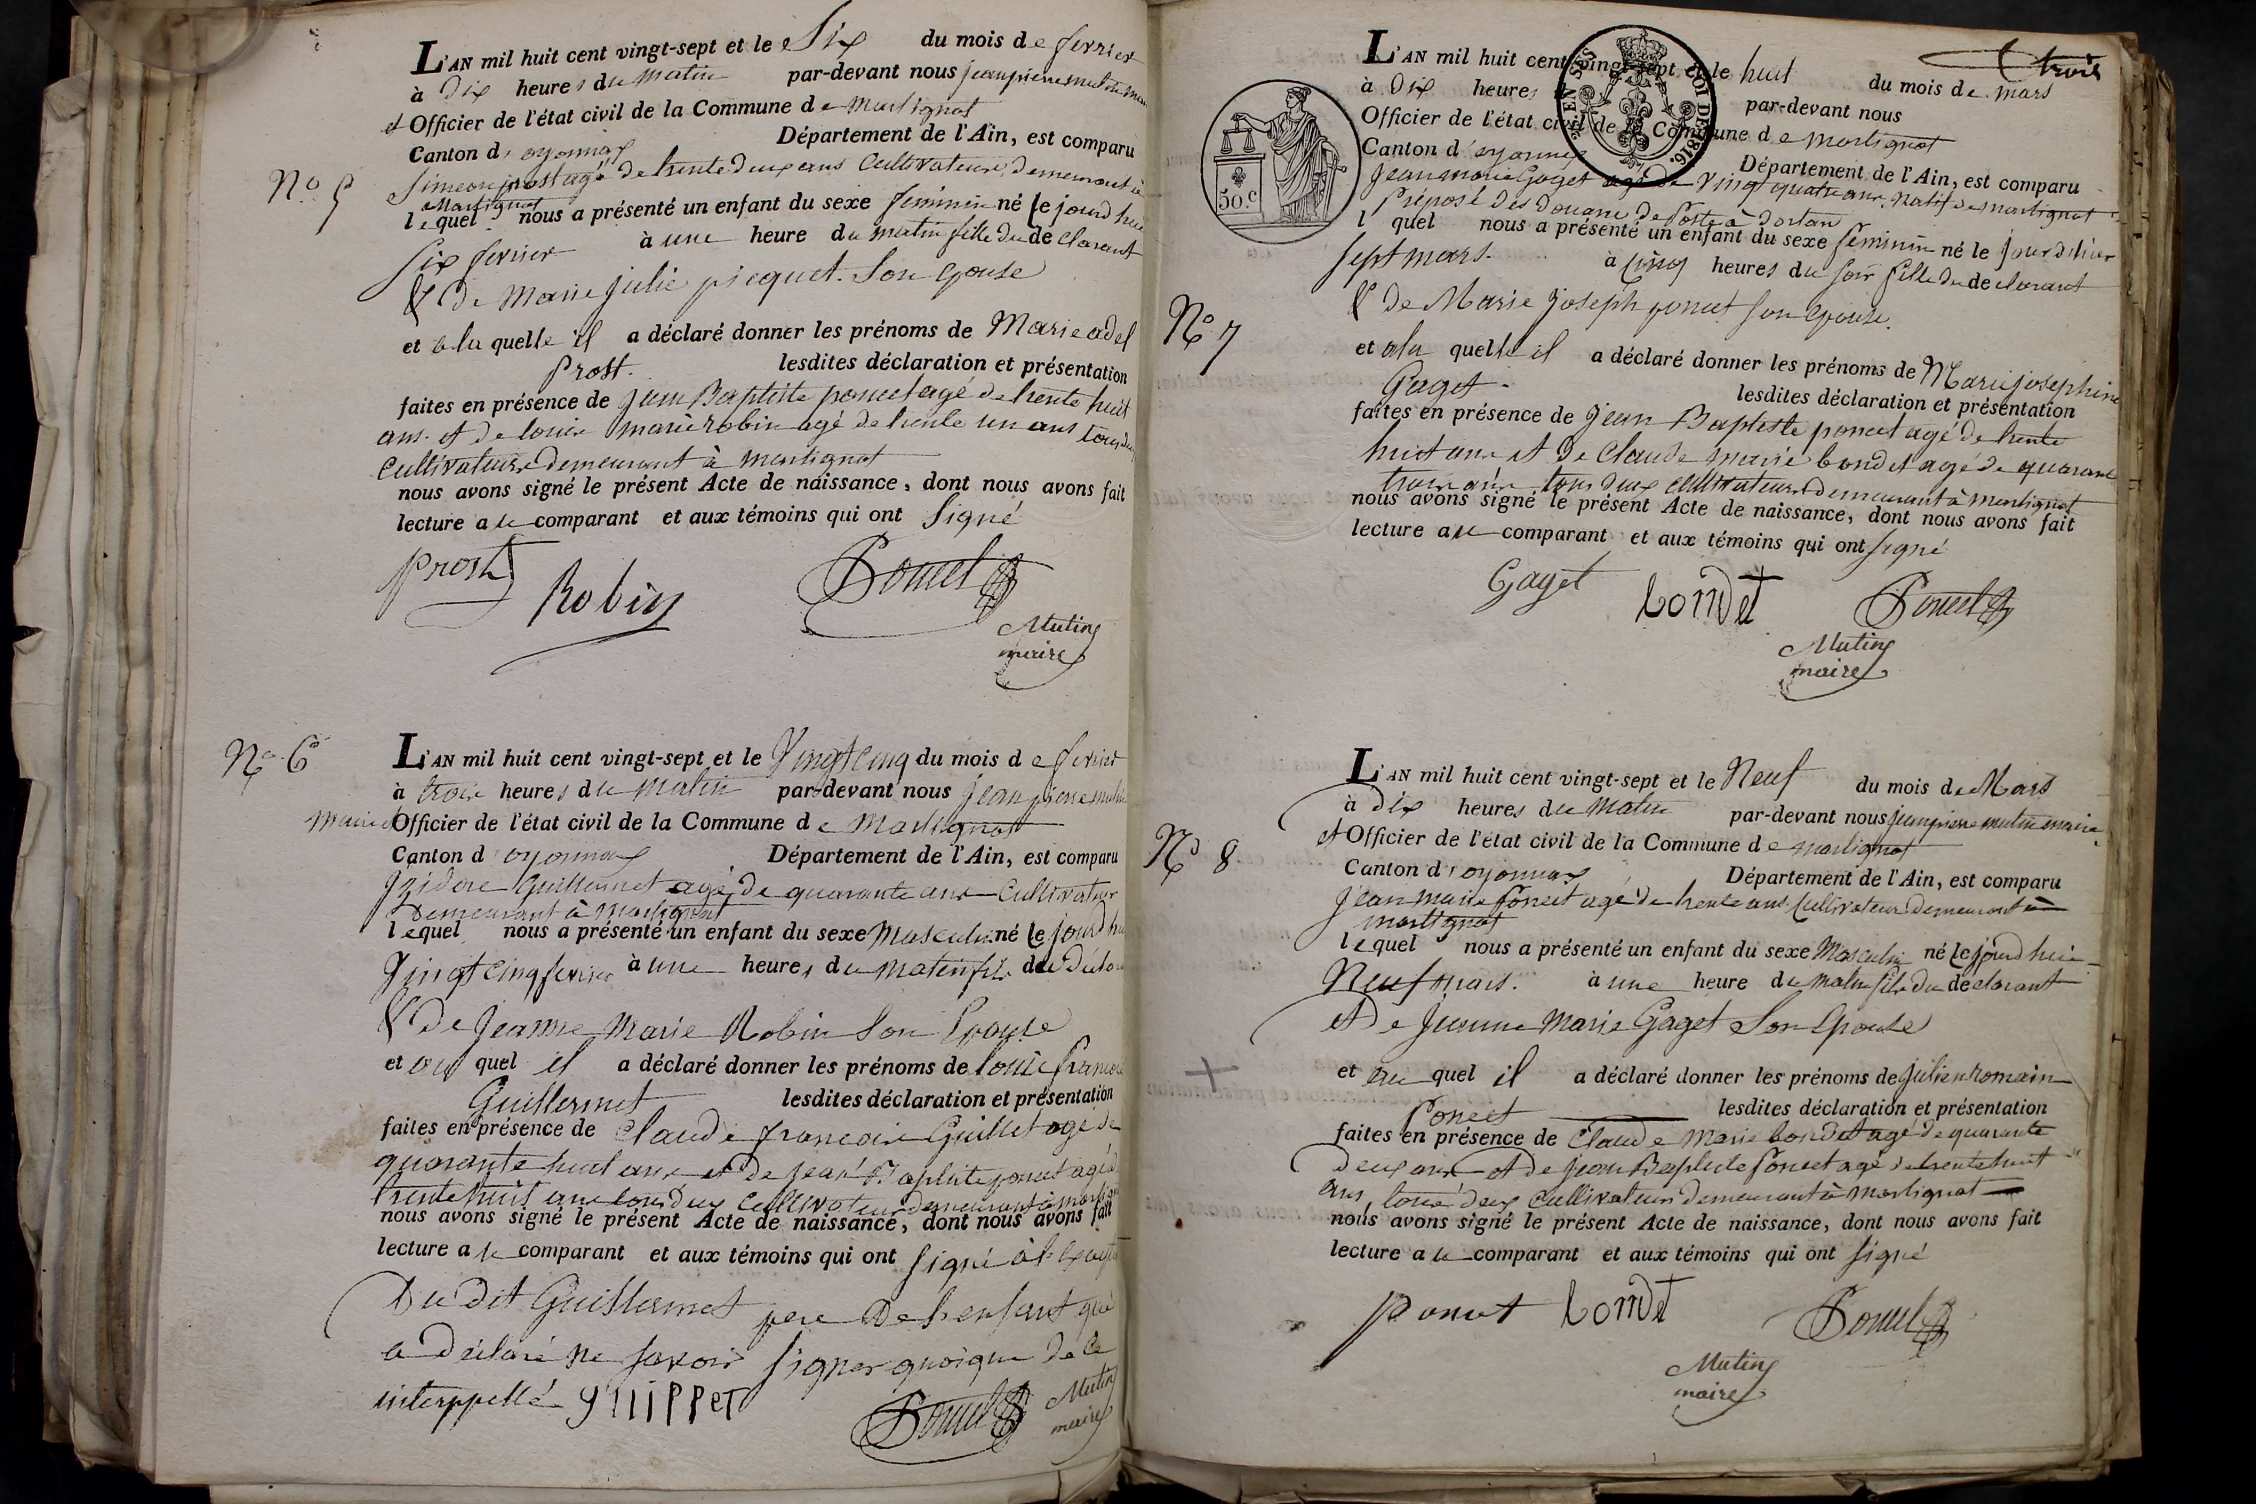 L'AN mil huit cent vingt-sept et le Six du mois de fevrier
à Dix heures du matin par-devant nous jean pierre mutin maire
et Officier de l'état civil de la Commune de Martignat
Canton d'oyonnax Département de l'Ain, est comparu
N.o 5
Simeon prost agé de trente deux ans Cultivateur, demeurant à
Martignat
lequel nous a présenté un enfant du sexe feminin né le jourd hui
Six fevrier à une heure du matin fille du declarant
& de Marie julie picquet. Son epouse
et a la quelle il a déclaré donner les prénoms de Marie adel
Prost. lesdites déclaration et présentation
faites en présence de jean Baptiste poncet agé de trente huit
ans. et de louis marie robin agé de trente un ans tous deux
Cultivateurs demeurant à martignat
nous avons signé le présent Acte de naissance, dont nous avons fait
lecture au comparant et aux témoins qui ont Signé
prost Robin Poncet
Mutin
maire
N.o 6
L'AN mil huit cent vingt-sept et le Vingt Cinq du mois de fevrier
à trois heures du matin par-devant nous jean pierre mutin
maire et Officier de l'état civil de la Commune de Martignat
Canton d'oyonnax Département de l'Ain, est comparu
Izidore Guillermet agé de quarante ans Cultivateur
Demeurant à Martignat
lequel nous a présenté un enfant du sexe Masculin né le jourd hui
Vingt Cinq fevrier à une heures du matin fils du
& De Jeanne Marie Robin Son Epouse
et au quel il a déclaré donner les prénoms de louis francois
Guillermet lesdites déclaration et présentation
faites en présence de Claude francois Guillet agé de
quarante huit ans et de jean Baptiste poncet agé de
trente huit ans tous deux Cultivateurs demeurant à martignat
nous avons signé le présent Acte de naissance, dont nous avons fait
lecture au comparant et aux témoins qui ont Signé à l'exception
Du dit Guillermet pere De l'enfant qui
a Déclaré ne savoir Signer quoique de ce
interppellé Poncet Mutin
maire
trois
L'AN mil huit cent vingt-sept et le huit du mois de mars
à Dix heures par-devant nous
Officier de l'état civil de la Commune de Martignat
Canton d'oyonnax Département de l'Ain, est comparu
50.c
EN SUS
LOI DE 1816.
Jean marie Gaget agé de Vingt quatre ans. Natif de martignat
Préposé des douane de Poste à dortan
l quel nous a présenté un enfant du sexe feminin né le jour dhier
Sept mars. à Cinq heures du soir fille du declarant
N.o 7
& de Marie joseph poncet son epouse.
et a la quelle il a déclaré donner les prénoms de Marie josephine
Gaget. lesdites déclaration et présentation
faites en présence de jean Baptiste poncet agé de trente
huit ans et De Claude marie bondet agé de quarante
trois ans tous deux cultivateurs demeurant à martignat
nous avons signé le présent Acte de naissance, dont nous avons fait
lecture au comparant et aux témoins qui ont signé
Gaget bondet Poncet
Mutin
maire
L'AN mil huit cent vingt-sept et le Neuf du mois de Mars
à Dix heures du Matin par-devant nous jean pierre mutin maire
et Officier de l'état civil de la Commune de martignat
N.o 8
Canton d'oyonnax Département de l'Ain, est comparu
Jean Marie Poncet agé de trente ans Cultivateur demeurant à
martignat
lequel nous a présenté un enfant du sexe Masculin né le jourd hui
Neuf mars. à une heure du matin fils du declarant
et De Jeanne Marie Gaget Son Epouse
et au quel il a déclaré donner les prénoms de Julien romain
Poncet lesdites déclaration et présentation
faites en présence de Claude Marie bondet agé de quarante
Deux ans et de Jean Baptiste Poncet agé de trente huit
ans, tous deux Cultivateurs demeurant à Martignat
nous avons signé le présent Acte de naissance, dont nous avons fait
lecture au comparant et aux témoins qui ont Signé
poncet bondet Poncet
Mutin
maire